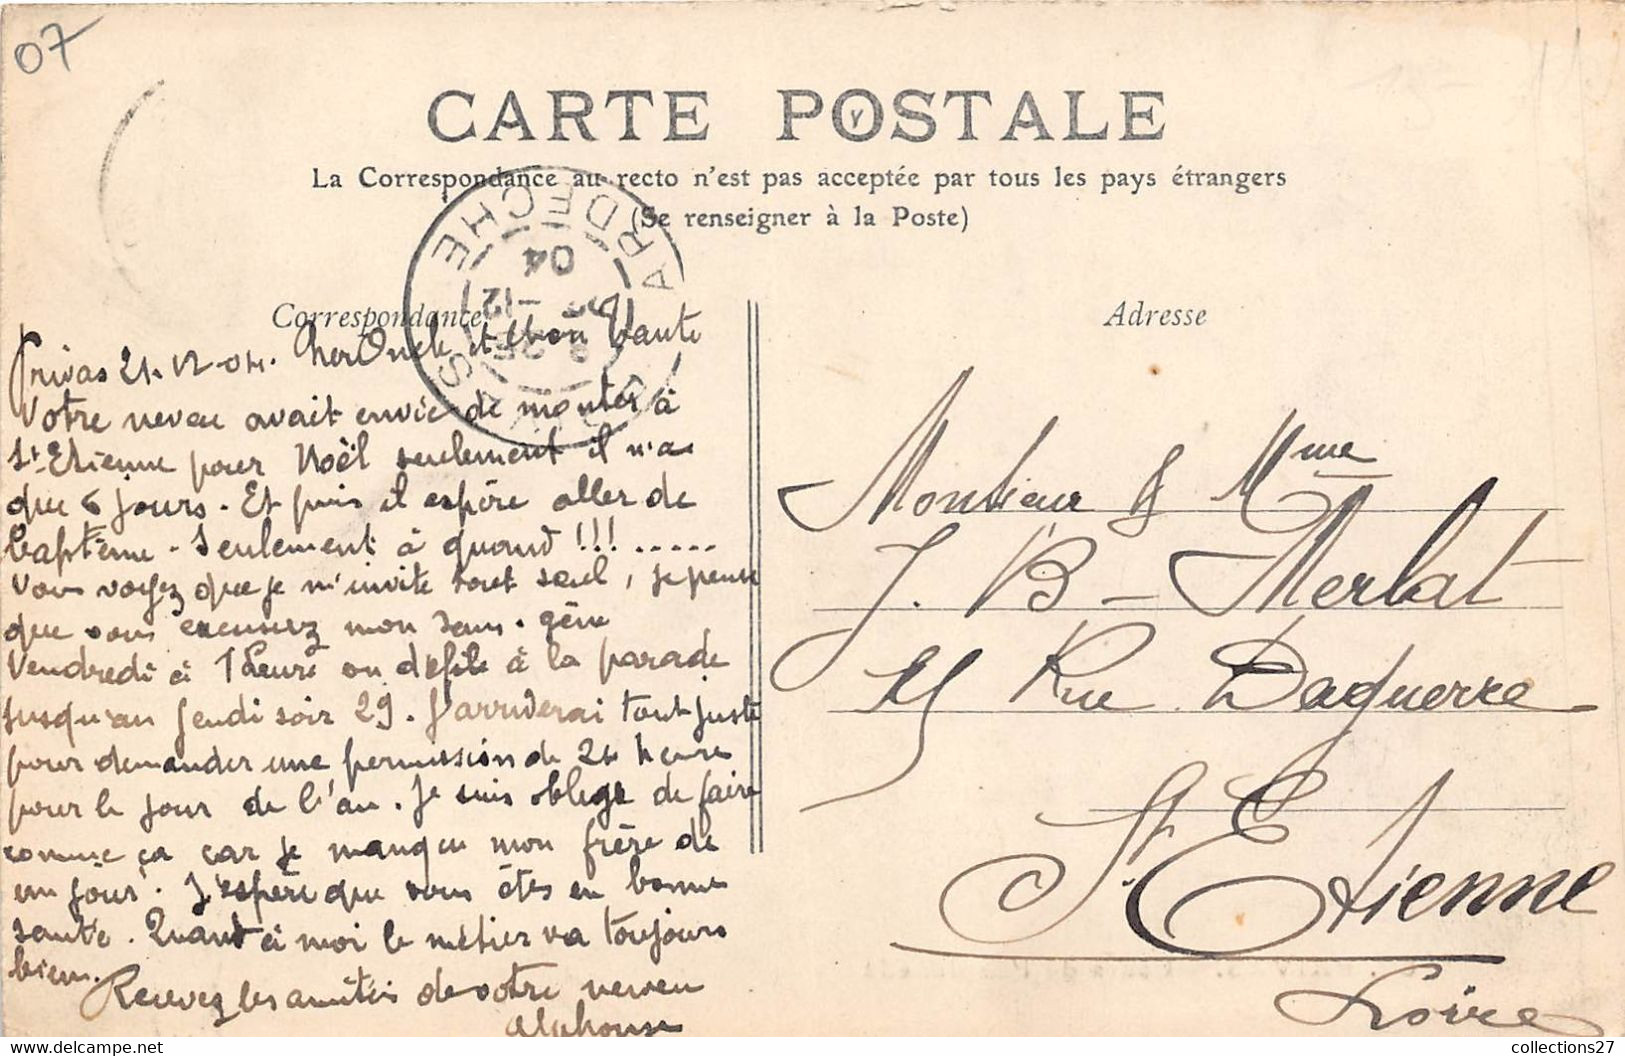 07
CARTE POSTALE
La Correspondance au recto n'est pas acceptée par tous les pays étrangers
(Se renseigner à la Poste)
PRIVAS ARDECHE
8 25
23 -12
04
Correspondance
Privas 21-12-04. Cher Oncle et chère Tante
Votre neveu avait envie de monter à
St-Etienne pour Noël seulement il n'a
que 6 jours. Et puis il espère aller de
baptême. Seulement à quand !!! .....
Vous voyez que je m'invite tout seul, je pense
que vous excuserez mon sans-gêne
Vendredi à 1 heure on défile à la parade
jusqu'au jeudi soir 29. J'arriverai tout juste
pour demander une permission de 24 heures
pour le jour de l'an. Je suis oblege de faire
comme ça car je manque mon frère de
un jour. J'espère que vous êtes en bonne
santé. Quant à moi le métier va toujours
bien.
Recevez les amitiés de votre neveu
Alphonse
Adresse
Monsieur & Mme
J. B - Merlat
Rue Daguerre
St. Etienne
Loire
collections27